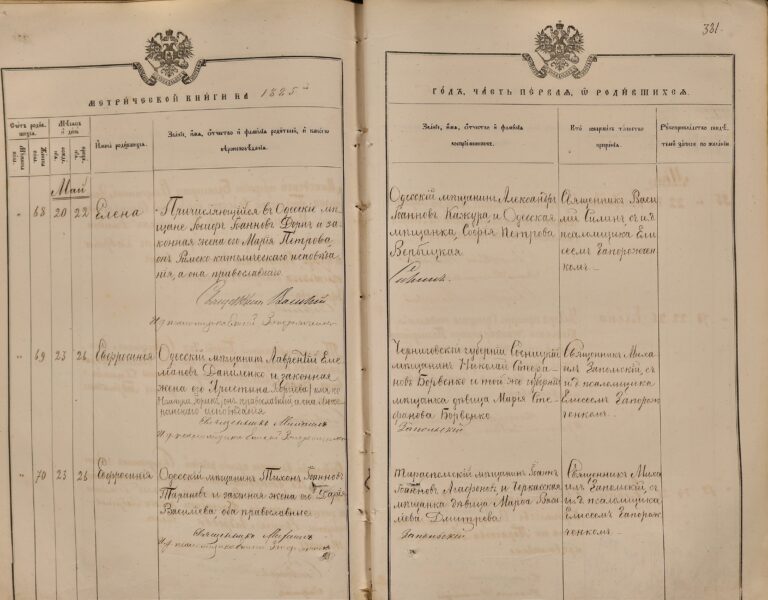 381.
МЕТРИ́ЧЕСКОЙ КНИ́ГИ НА 1885й
ГО́ДЪ, ЧАСТЬ ПЕ́РВАЯ, Ѡ РОДИ́ВШИХСЯ.
Счетъ роди-
вшихся.
Мѣсяцъ
и день
Имена родившихся.
Званіе, имя, отчество и фамилія родителей, и какого
вѣроисповѣданія.
Званіе, имя, отчество и фамилія
воспріемниковъ.
Кто совершалъ таинство
крещенія.
Рукоприкладство свидѣ-
телей записи по желанію
Май
68 20 22 Елена
Причисляющійся въ Одессы мѣ-
щане Іосифъ Іоанновъ и за-
конная жена его Марія Петрова,
онъ Римско-католическаго исповѣда-
нія, а она православнаго.
Священникъ Василій
И.д. псаломщика Елисей Запорожченко
Одесскій мѣщанинъ Александръ
Іоанновъ Кажура и Одесская
мѣщанка Софія Петрова
Вербицкая.
Силинъ
Священникъ Васи-
лій Силинъ, съ и.д.
псаломщика Ели-
сеемъ Запорожчен-
комъ
69 23 26 Евфросинія
Одесскій мѣщанинъ Лаврентій Еме-
ліановъ Даниленко и законная
жена его Христина
онъ православный, а она Люте-
ранскаго исповѣданія
Священникъ Михаилъ
И.д. псаломщика Елисей Запорожченко
Черниговской губерніи Сосницкій
мѣщанинъ Николай Стефа-
новъ Борвенко и той же губерніи
мѣщанка дѣвица Марія Сте-
фанова Борвенко
Запольскій
Священникъ Миха-
илъ Запольскій, съ
и.д. псаломщика
Елисеемъ Запорож-
ченкомъ
70 23 26 Евфросинія
Одесскій мѣщанинъ Тихонъ Іоанновъ
и законная жена его Дарія
Василіева, оба православные.
Священникъ Михаилъ
И.д. псаломщика Елисей Запорожченко
Тираспольскій мѣщанинъ Іоаннъ
Іоанновъ Агафоновъ и Черкасская
мѣщанка дѣвица Марѳа Васи-
ліева Дмитріева
Запольскій
Священникъ Миха-
илъ Запольскій, съ
и.д. псаломщика
Елисеемъ Запорож-
ченкомъ